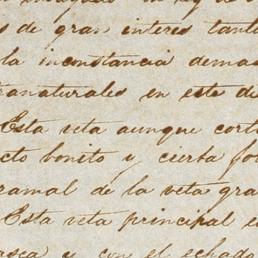 s de gran interes tanto
la inconstancia demas
tranaturales en este di
Esta veta aunque cort
cto bonito y cierta fo
ramal de la veta gra
Esta veta principal e
asca y con el echado